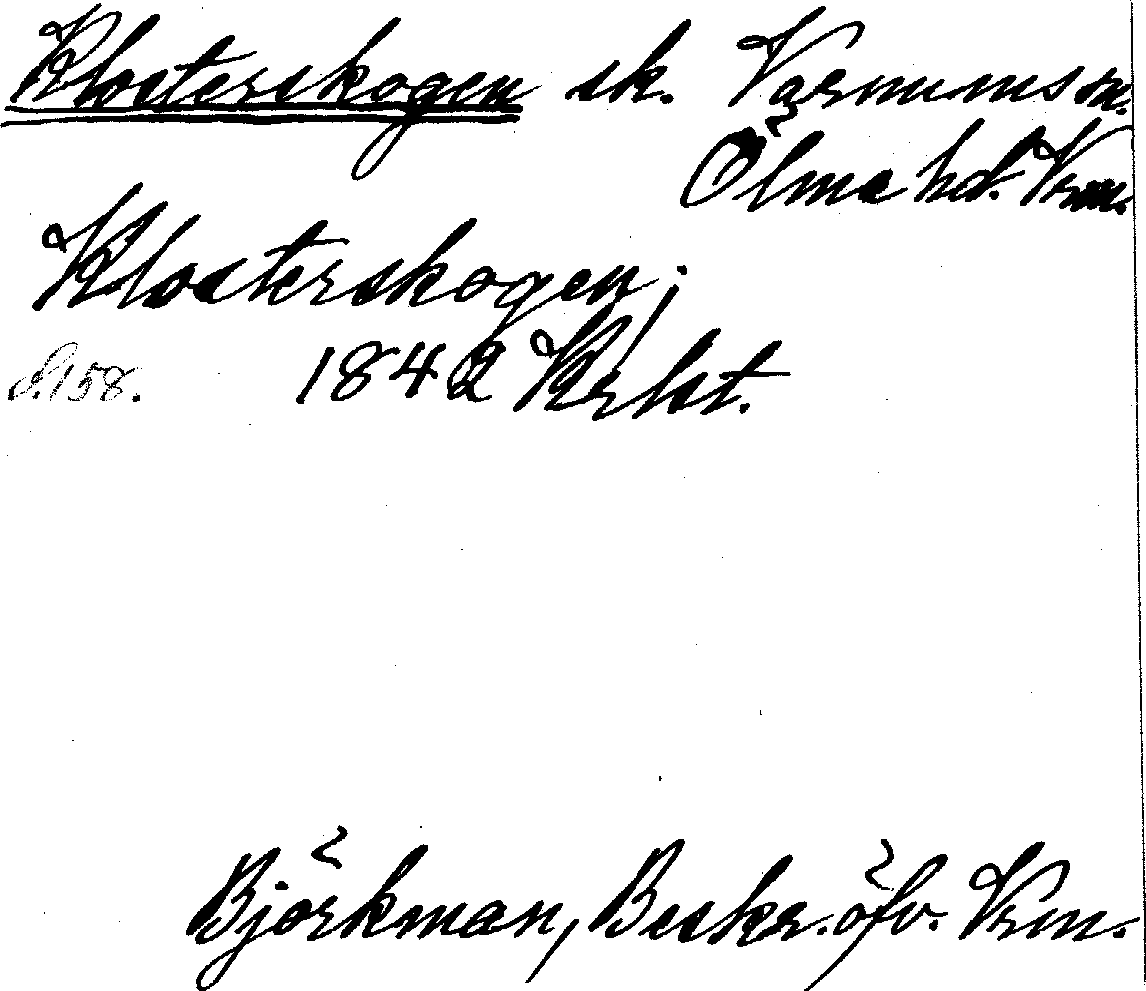 Klosterskogen sk. Varnumssn.
Ölme hd. Vrm.
Klosterskogen;
S. 158. 1842 Krlst.
Björkman, Beskr. öfv. Vrm.